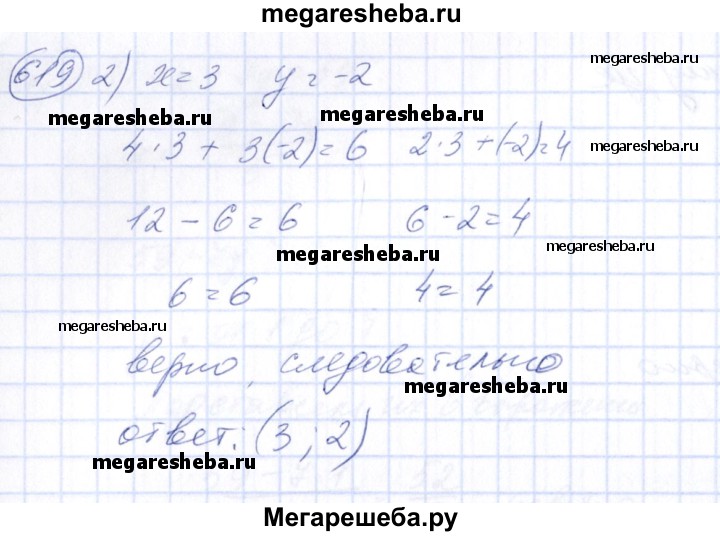 megaresheba.ru
619 2) x = 3 y = -2
megaresheba.ru
megaresheba.ru
4 · 3 + 3(-2) = 6 2 · 3 + (-2) = 4
megaresheba.ru
12 - 6 = 6 6 - 2 = 4
megaresheba.ru
megaresheba.ru
6 = 6 4 = 4
megaresheba.ru
верно, следовательно
megaresheba.ru
ответ: (3 ; 2)
megaresheba.ru
Мегарешеба.ру